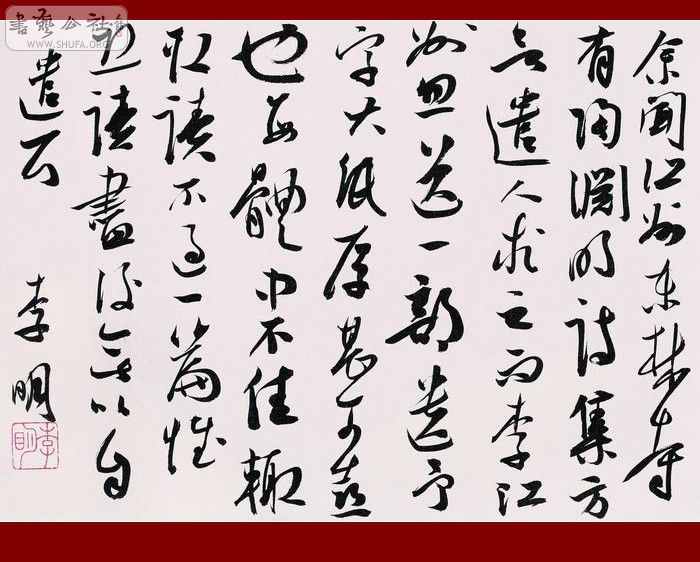 余聞江州東林寺
有陶淵明詩集方
欲遣人求之而李江
州忽送一部遺予
字大紙厚甚可喜
也每體中不佳輒
取讀不過一篇惟
恐讀盡後無以自
遣耳
李明
李明
書藝公社
WWW.SHUFA.ORG